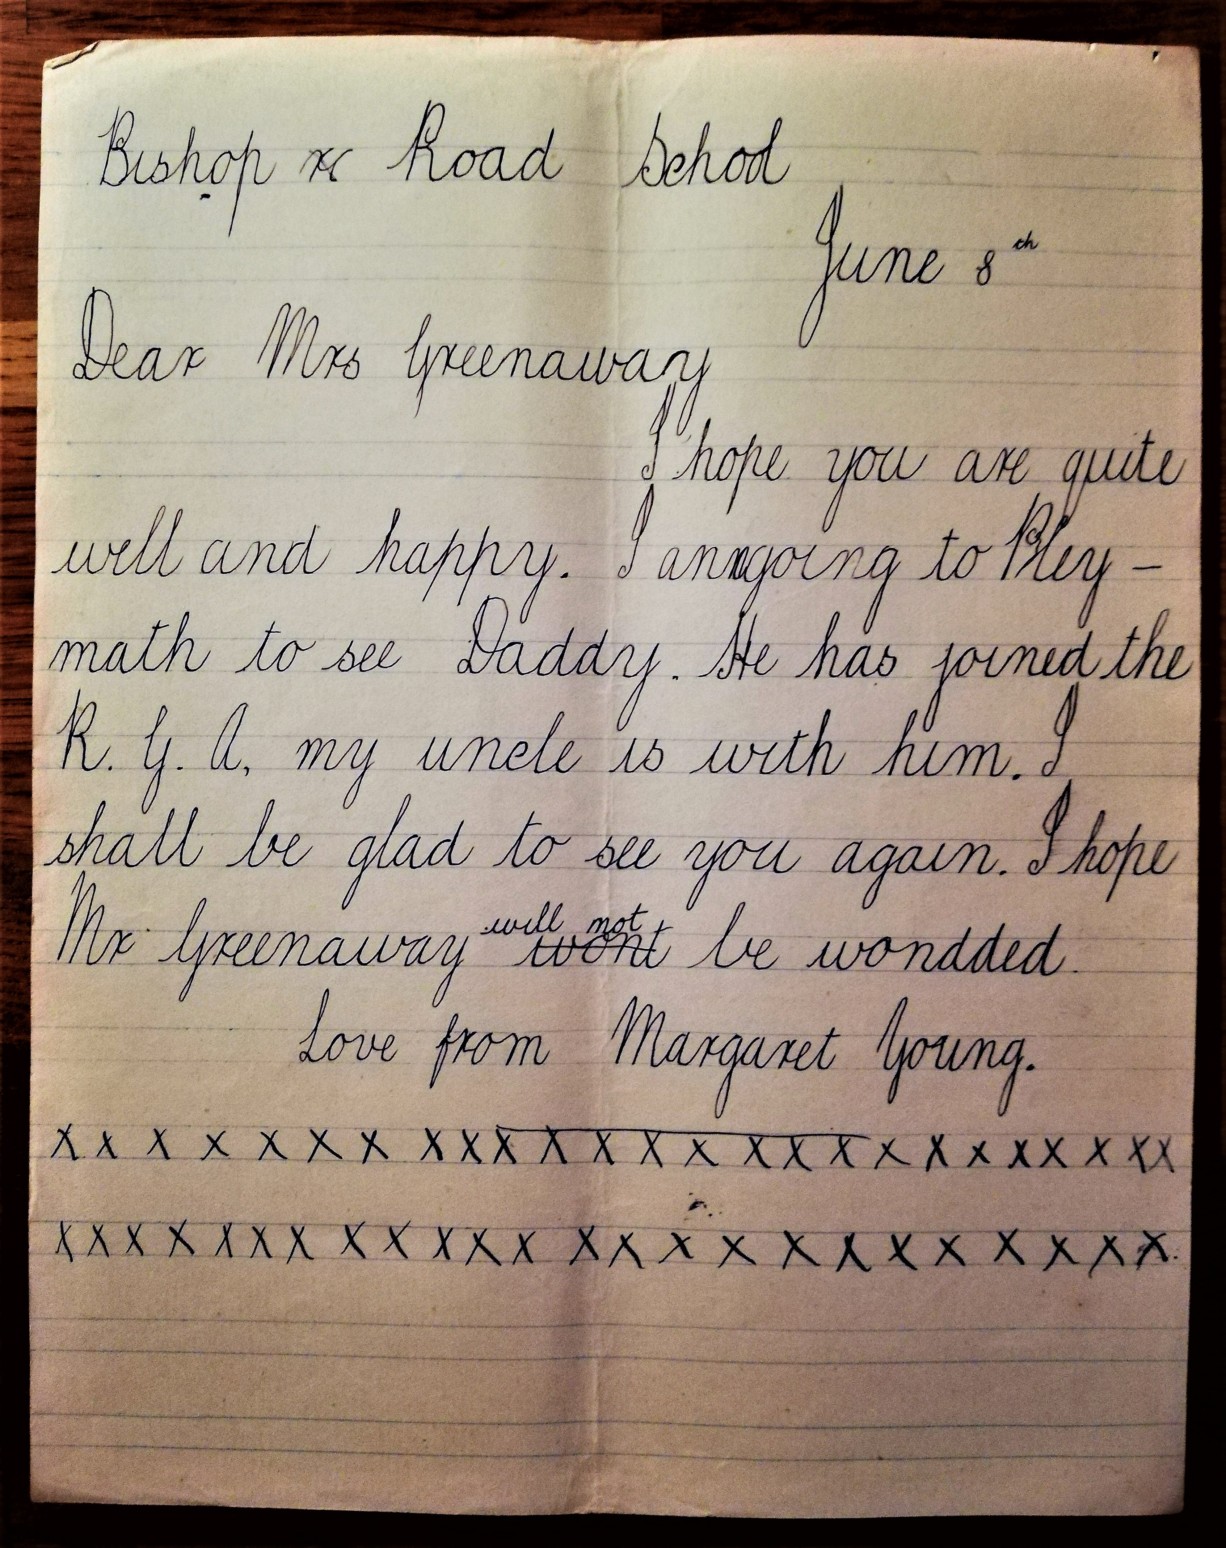 Bishop Road School
June 8th
Dear Mrs Greenaway
I hope you are quite
well and happy. I am going to Pley-
math to see Daddy. He has joined the
R. G. A, my uncle is with him. I
shall be glad to see you again. I hope
Mr Greenaway will not wont be wondded.
Love from Margaret Young.
x x x x x x x x x x x x x x x x x x x x x x x x x
x x x x x x x x x x x x x x x x x x x x x x x x